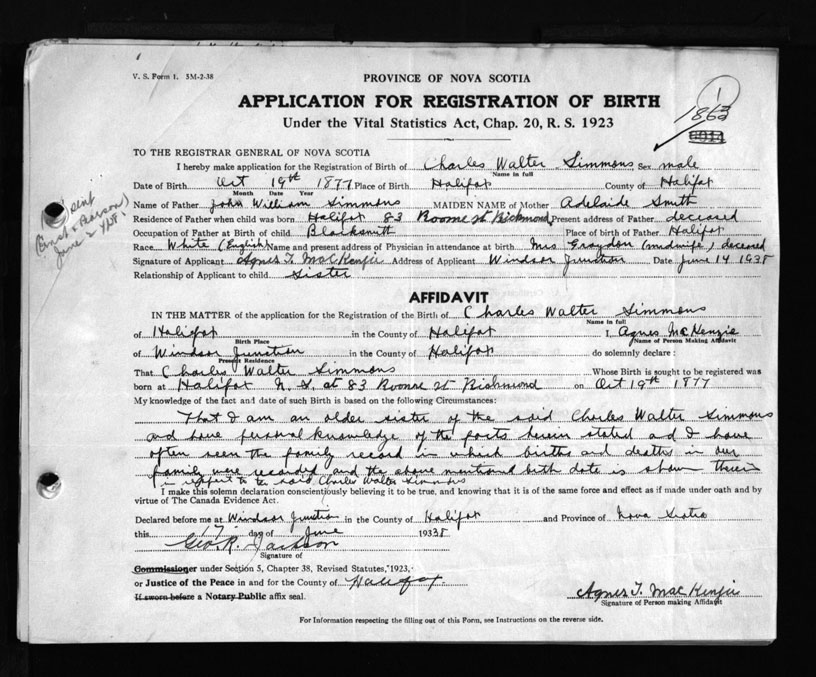 V. S. Form 1. 5M-2-38
PROVINCE OF NOVA SCOTIA
APPLICATION FOR REGISTRATION OF BIRTH
Under the Vital Statistics Act, Chap. 20, R. S. 1923
1
1863
TO THE REGISTRAR GENERAL OF NOVA SCOTIA
I hereby make application for the Registration of Birth of Charles Walter Simmons Sex male
Name in full
Date of Birth Oct 19th 1877 Place of Birth Halifax County of Halifax
Month Date Year
Name of Father John William Simmons MAIDEN NAME of Mother Adelaide Smith
Residence of Father when child was born Halifax 83 Roome St Richmond Present address of Father deceased
Occupation of Father at Birth of child Blacksmith Place of birth of Father Halifax
Race White (English) Name and present address of Physician in attendance at birth Mrs Graydon (midwife) deceased
Signature of Applicant Agnes T. MacKenzie Address of Applicant Windsor Junction Date June 14 1938
Relationship of Applicant to child Sister
June 2 4/38
AFFIDAVIT
IN THE MATTER of the application for the Registration of the Birth of Charles Walter Simmons
Name in full
of Halifax in the County of Halifax I, Agnes McKenzie
Birth Place Name of Person Making Affidavit
of Windsor Junction in the County of Halifax do solemnly declare :
Present Residence
That Charles Walter Simmons Whose Birth is sought to be registered was
born at Halifax N. S. at 83 Roome St Richmond on Oct 19th 1877
My knowledge of the fact and date of such Birth is based on the following Circumstances:
That I am an older sister of the said Charles Walter Simmons
and have personal knowledge of the facts herein stated and I have
often seen the family record in which births and deaths in our
family were recorded and the above mentioned birth date is shown therein
in respect to the said Charles Walter Simmons
I make this solemn declaration conscientiously believing it to be true, and knowing that it is of the same force and effect as if made under oath and by
virtue of The Canada Evidence Act.
Declared before me at Windsor Junction in the County of Halifax and Province of Nova Scotia
this 17 day of June 1938
Geo. R. Jackson
Signature of
Commissioner under Section 5, Chapter 38, Revised Statutes, 1923,
or Justice of the Peace in and for the County of Halifax
If sworn before a Notary Public affix seal.
Agnes T. MacKenzie
Signature of Person making Affidavit
For Information respecting the filling out of this Form, see Instructions on the reverse side.